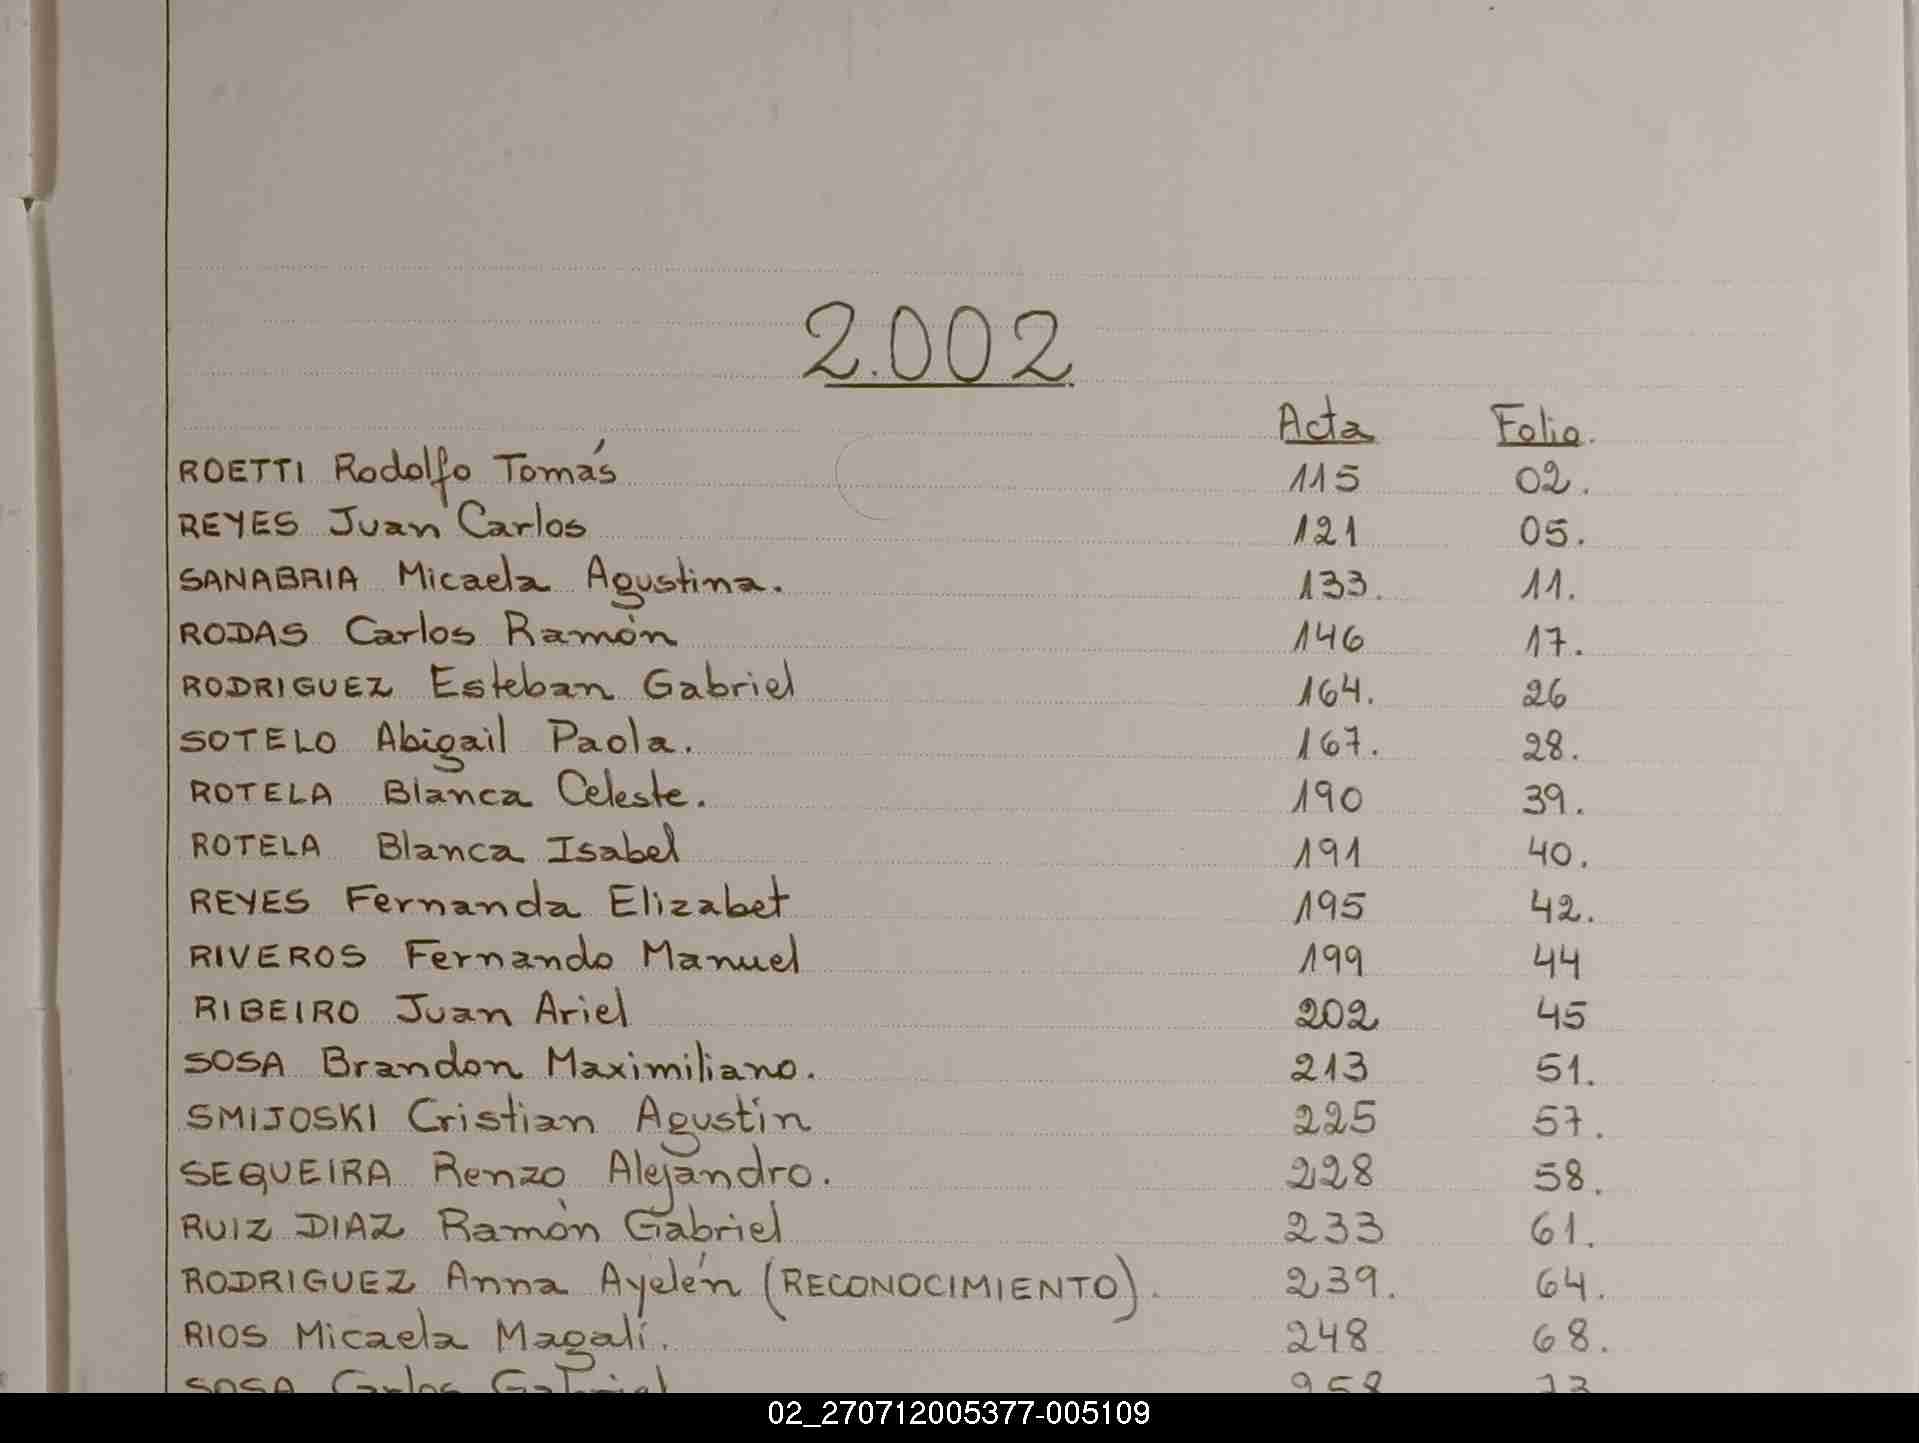 2.002
Acta Folio.
ROETTI Rodolfo Tomás 115 02.
REYES Juan Carlos 121 05.
SANABRIA Micaela Agustina. 133. 11.
RODAS Carlos Ramón 146 17.
RODRIGUEZ Esteban Gabriel 164. 26
SOTELO Abigail Paola. 167. 28.
ROTELA Blanca Celeste. 190 39.
ROTELA Blanca Isabel 191 40.
REYES Fernanda Elizabet 195 42.
RIVEROS Fernando Manuel 199 44
RIBEIRO Juan Ariel 202 45
SOSA Brandon Maximiliano. 213 51.
SMIJOSKI Cristian Agustín 225 57.
SEQUEIRA Renzo Alejandro. 228 58.
RUIZ DIAZ Ramón Gabriel 233 61.
RODRIGUEZ Anna Ayelén (RECONOCIMIENTO). 239. 64.
RIOS Micaela Magalí. 248 68.
SOSA Carlos Gabriel 258 73
02_270712005377-005109